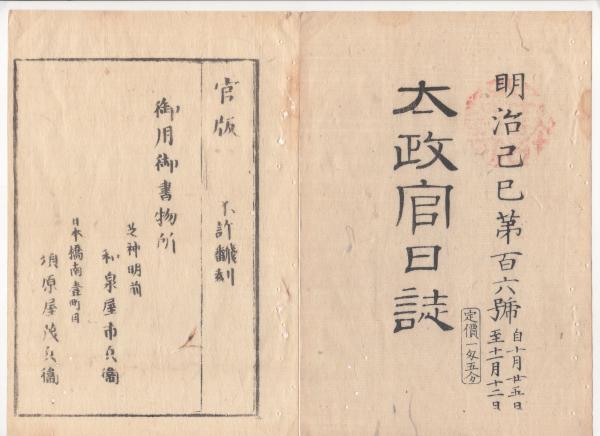 明治己巳第百六號
自十月廿五日
至十一月十二日
太政官日誌
定價一匁五分
官版
不許
御用御書物所
芝神明前
和泉屋市兵衞
日本橋南壹町目
須原屋茂兵衞